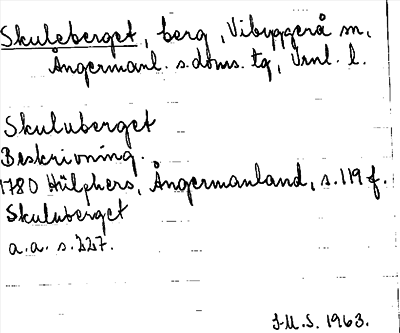 Skuleberget, berg, Vibyggerå sn,
Ångermanl. s. doms. tg, Vrnl. l.
Skuluberget
Beskrivning.
1780 Hülphers, Ångermanland, s. 119 f.
Skuluberget
a.a. s. 227.
J.U.S. 1963.